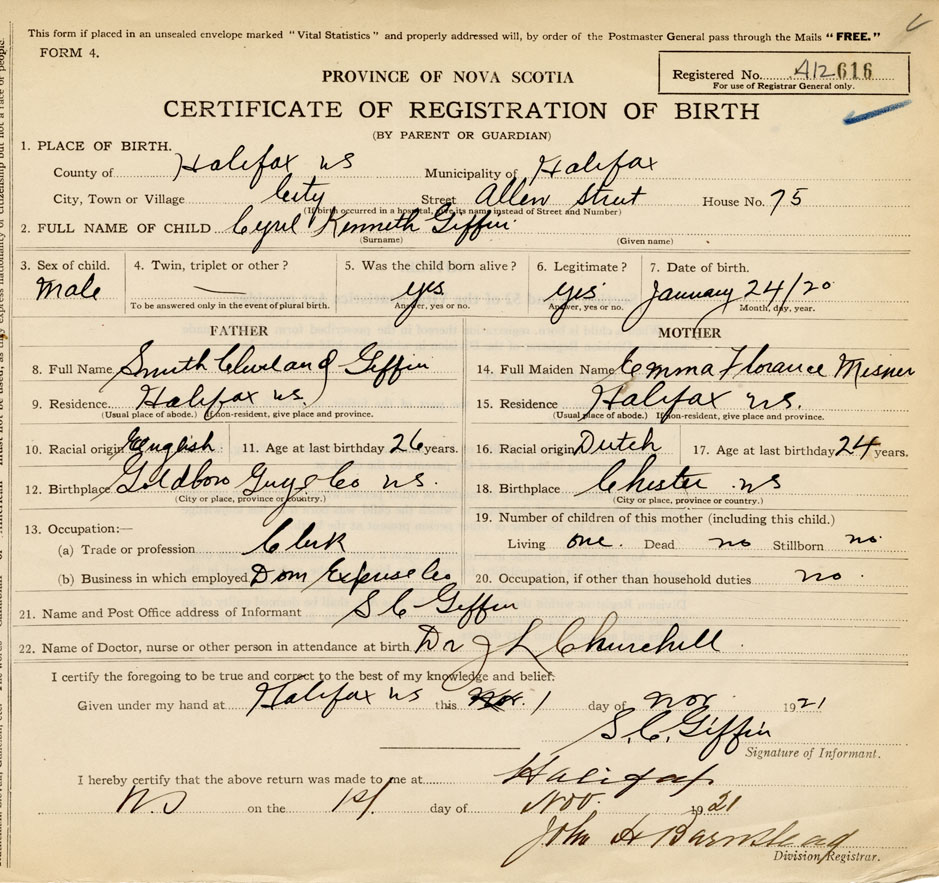 This form if placed in an unsealed envelope marked "Vital Statistics" and properly addressed will, by order of the Postmaster General pass through the Mails "FREE."
FORM 4.
Registered No. A12616
For use of Registrar General only.
PROVINCE OF NOVA SCOTIA
CERTIFICATE OF REGISTRATION OF BIRTH
(BY PARENT OR GUARDIAN)
1. PLACE OF BIRTH.
County of Halifax ns Municipality of Halifax
City, Town or Village City Street Allen Street House No. 75
(If birth occurred in a hospital, give its name instead of Street and Number)
2. FULL NAME OF CHILD Cyril Kenneth Giffin
(Surname) (Given name)
3. Sex of child. 4. Twin, triplet or other? 5. Was the child born alive? 6. Legitimate? 7. Date of birth.
Male — yes yes January 24/20
To be answered only in the event of plural birth. Answer, yes or no. Answer, yes or no. Month, day, year.
FATHER MOTHER
8. Full Name Smith Cleveland Giffin 14. Full Maiden Name Emma Florance Misner
9. Residence Halifax ns. 15. Residence Halifax ns.
(Usual place of abode.) If non-resident, give place and province. (Usual place of abode.) If non-resident, give place and province.
10. Racial origin English 11. Age at last birthday 26 years. 16. Racial origin Dutch 17. Age at last birthday 24 years.
12. Birthplace Goldboro Guys Co ns. 18. Birthplace Chester ns
(City or place, province or country.) (City or place, province or country.)
13. Occupation:— 19. Number of children of this mother (including this child.)
(a) Trade or profession Clerk Living one. Dead no Stillborn no.
(b) Business in which employed Dom Express Co 20. Occupation, if other than household duties no.
21. Name and Post Office address of Informant S C Giffin
22. Name of Doctor, nurse or other person in attendance at birth Dr J L Churchill
I certify the foregoing to be true and correct to the best of my knowledge and belief:
Given under my hand at Halifax ns this 1 day of Nov. 1921
S. C. Giffin
Signature of Informant.
I hereby certify that the above return was made to me at Halifax
NS on the 1st day of Nov. 1921
John H Barnstead
Division Registrar.